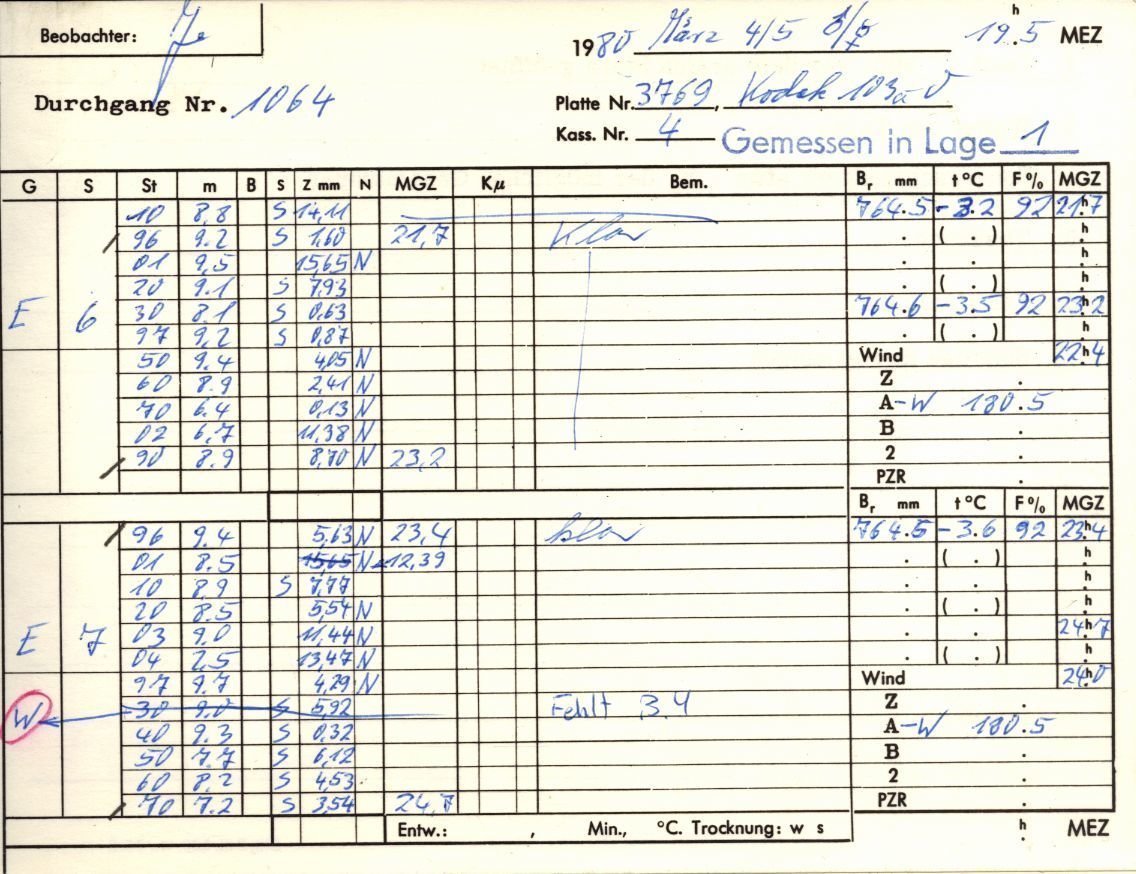 Beobachter: Je
1980 März 4/5 19.5 h MEZ
Durchgang Nr. 1064
Platte Nr. 3769, Kodak 103a D
Kass. Nr. 4 Gemessen in Lage 1
G S St m B S Z mm N MGZ Kμ Bem. Br mm t °C F % MGZ
10 8.8 S 14,11 764.5 -3.2 92 21.7 h
96 9.2 S 1,60 21,7 klar . ( . ) h
01 9,5 15,65 N . . h
20 9.1 S 7,93 . ( . ) h
E 6 30 8.1 S 0,63 764.6 -3.5 92 23.2 h
97 9,2 S 0,87 . ( . ) h
50 9.4 4,05 N Wind 22.4 h
60 8.9 2,41 N Z .
70 6.4 0,13 N A-W 180.5
02 6,7 11,38 N B .
90 8.9 8,70 N 23,2 2 .
PZR .
Br mm t °C F % MGZ
96 9.4 5,63 N 23,4 klar 764.5 -3.6 92 23.4 h
01 8.5 15,65 N 12,39 . ( . ) h
10 8.9 S 7,77 . . h
20 8.5 5,54 N . ( . ) h
E 7 03 9.0 11,44 N . . 24.7 h
04 2,5 13,47 N . ( . ) h
97 9.7 4,29 N Wind 24.0 h
W 30 9,0 S 5,92 Fehlt B.4 Z .
40 9.3 S 0,32 A-W 180.5
50 7.7 S 6,12 B .
60 8.2 S 4,53 2 .
70 7.2 S 3,54 24,7 PZR .
Entw.: , Min., °C. Trocknung: w s h . MEZ